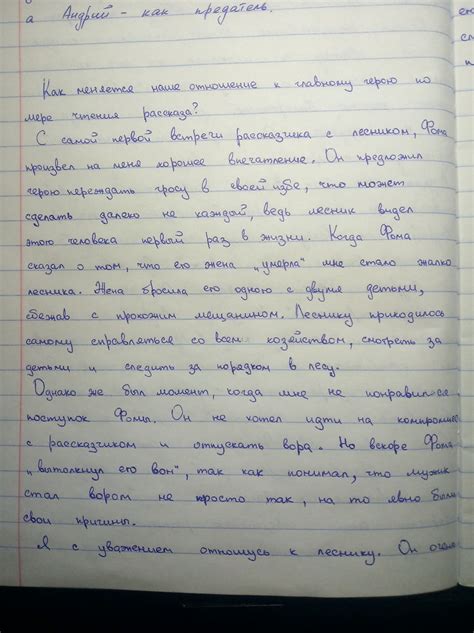 а Андрий - как предатель.
Как меняется наше отношение к главному герою по
мере чтения рассказа?
С самой первой встречи рассказчика с лесником, Фома
произвел на меня хорошее впечатление. Он предложил
герою переждать грозу в своей избе, что может
сделать далеко не каждый, ведь лесник видел
этого человека первый раз в жизни. Когда Фома
сказал о том, что его жена „умерла" мне стало жалко
лесника. Жена бросила его одного с двумя детьми,
сбежав с прохожим мещанином. Леснику приходилось
самому справляться со всем хозяйством, смотреть за
детьми и следить за порядком в лесу.
Однако же был момент, когда мне не понравился
поступок Фомы. Он не хотел идти на компромис
с рассказчиком и отпускать вора. Но вскоре Фома
„вытолкнул его вон", так как понимал, что мужик
стал вором не просто так, на то явно были
свои причины.
Я с уважением отношусь к леснику. Он очень